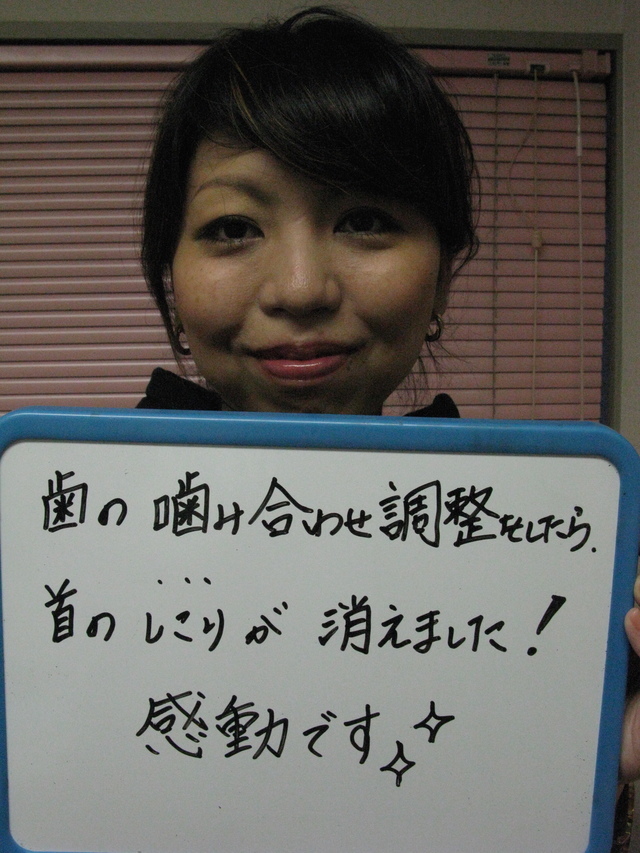 歯の噛み合わせ調整をしたら、
首のしこりが消えました!
感動です